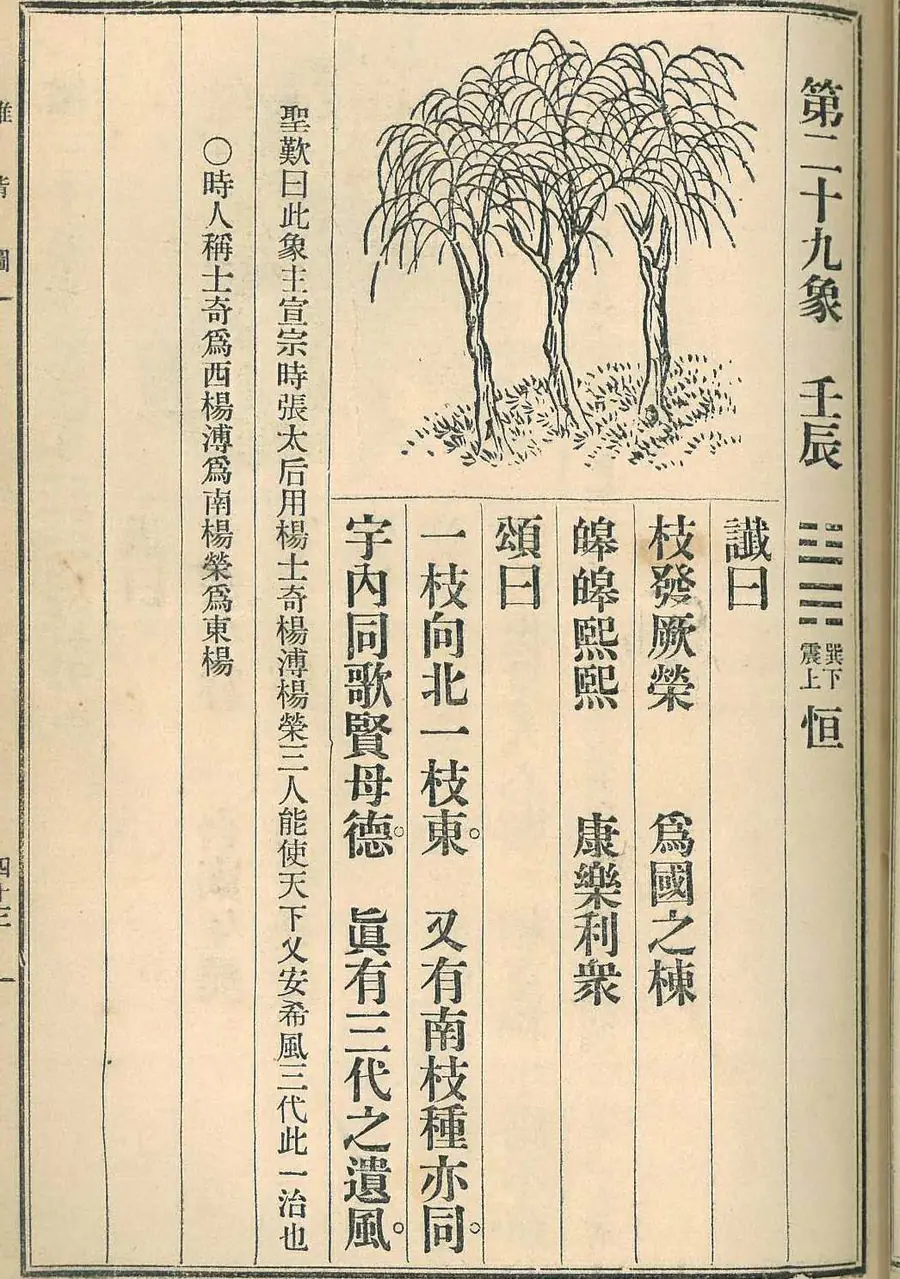 第二十九象 壬辰 ䷟ 巽下震上 恒
讖曰
枝發厥榮 爲國之棟
皞皞熙熙 康樂利衆
頌曰
一枝向北一枝東。 又有南枝種亦同。
宇內同歌賢母德。 眞有三代之遺風。
聖歎曰此象主宣宗時張太后用楊士奇楊溥楊榮三人能使天下乂安希風三代此一治也
○時人稱士奇爲西楊溥爲南楊榮爲東楊